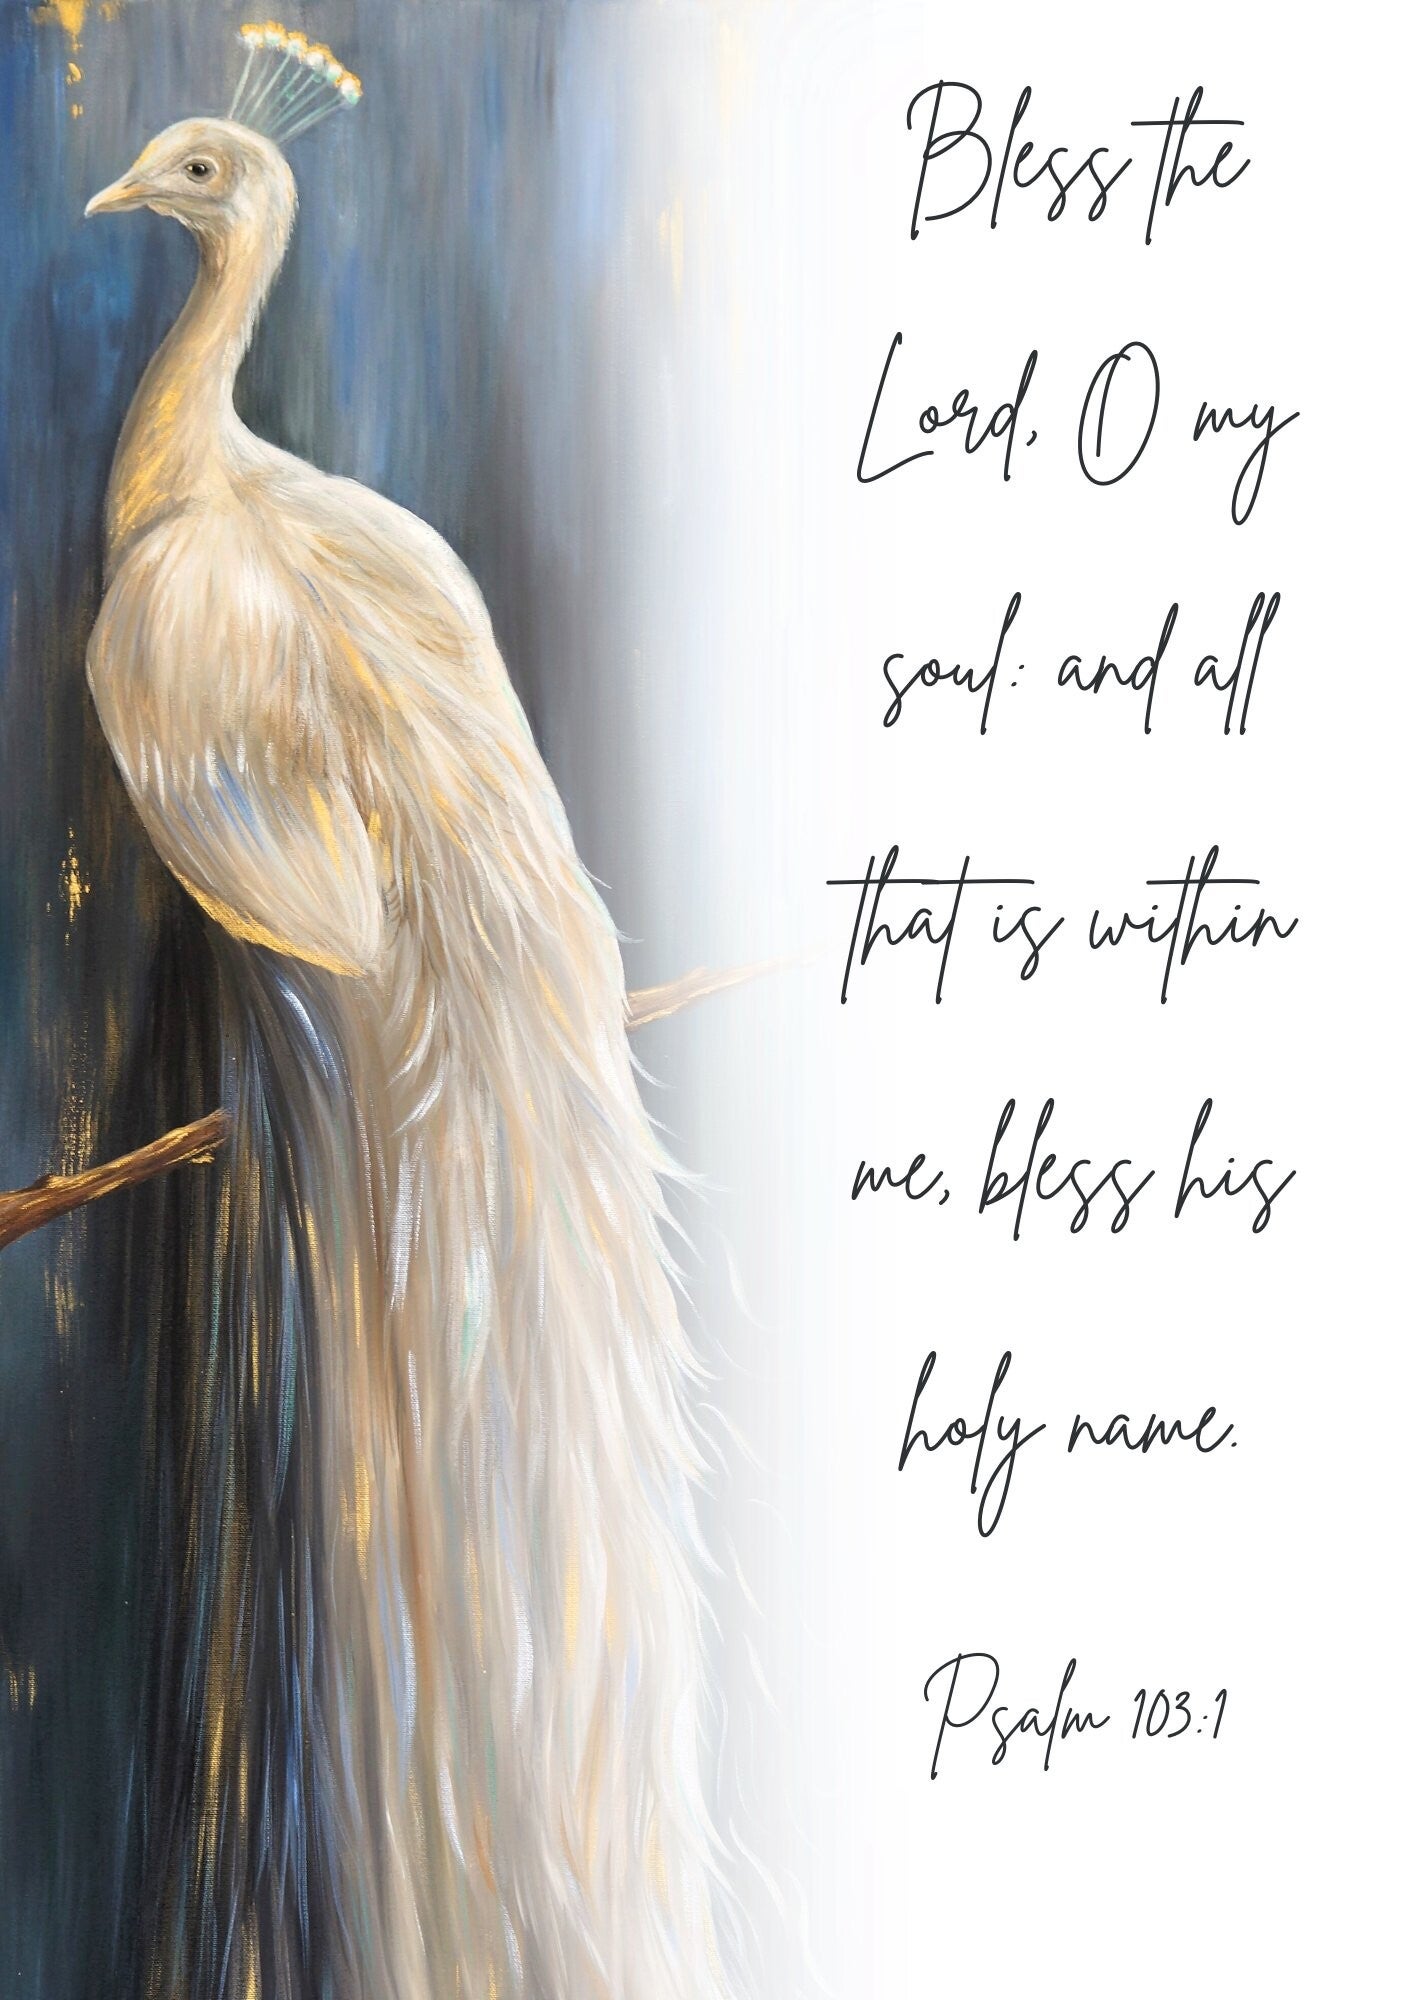 Bless the
Lord, O my
soul: and all
that is within
me, bless his
holy name.
Psalm 103:1